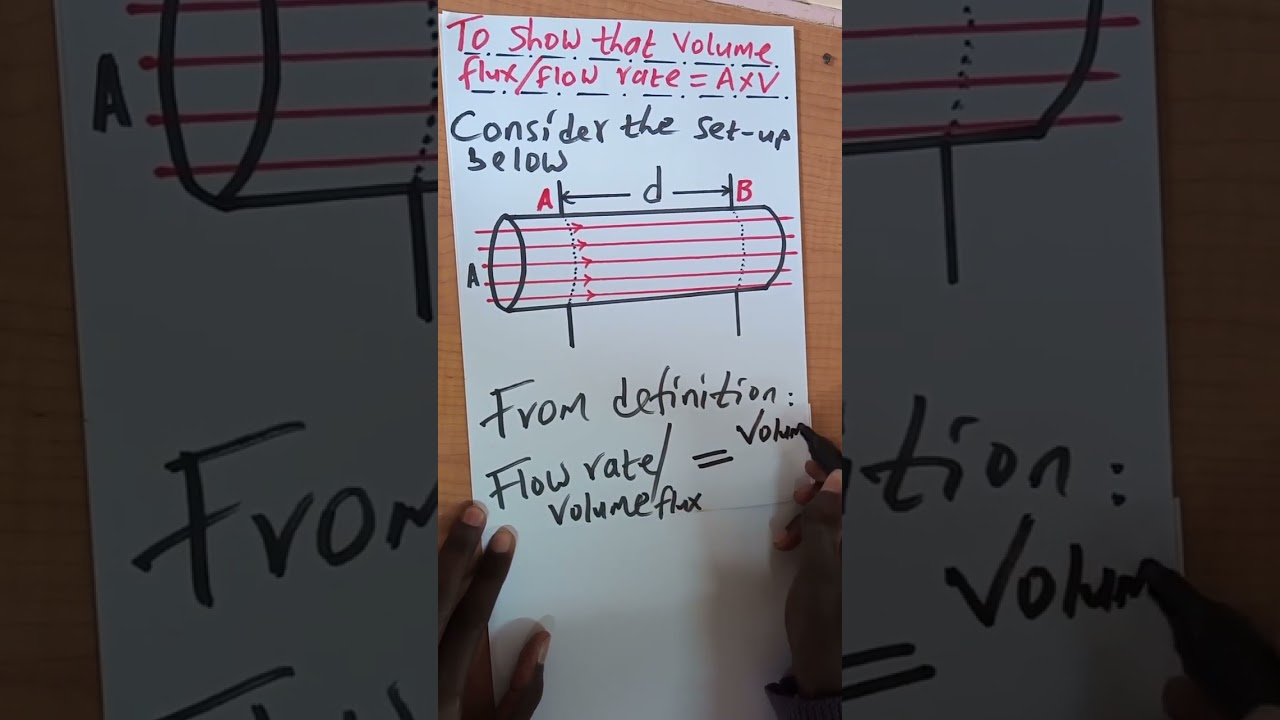 To show that volume
flux/flow rate = A×V
Consider the set-up
below
A d B
A
From definition:
Flow rate/ = Volum
volume flux